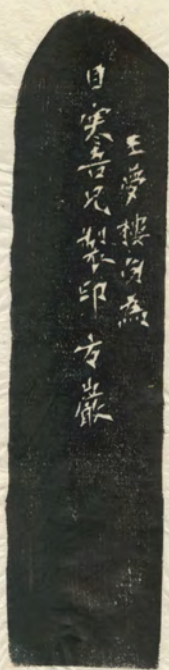 王夢樓句為
日寒吾兄製印方巖